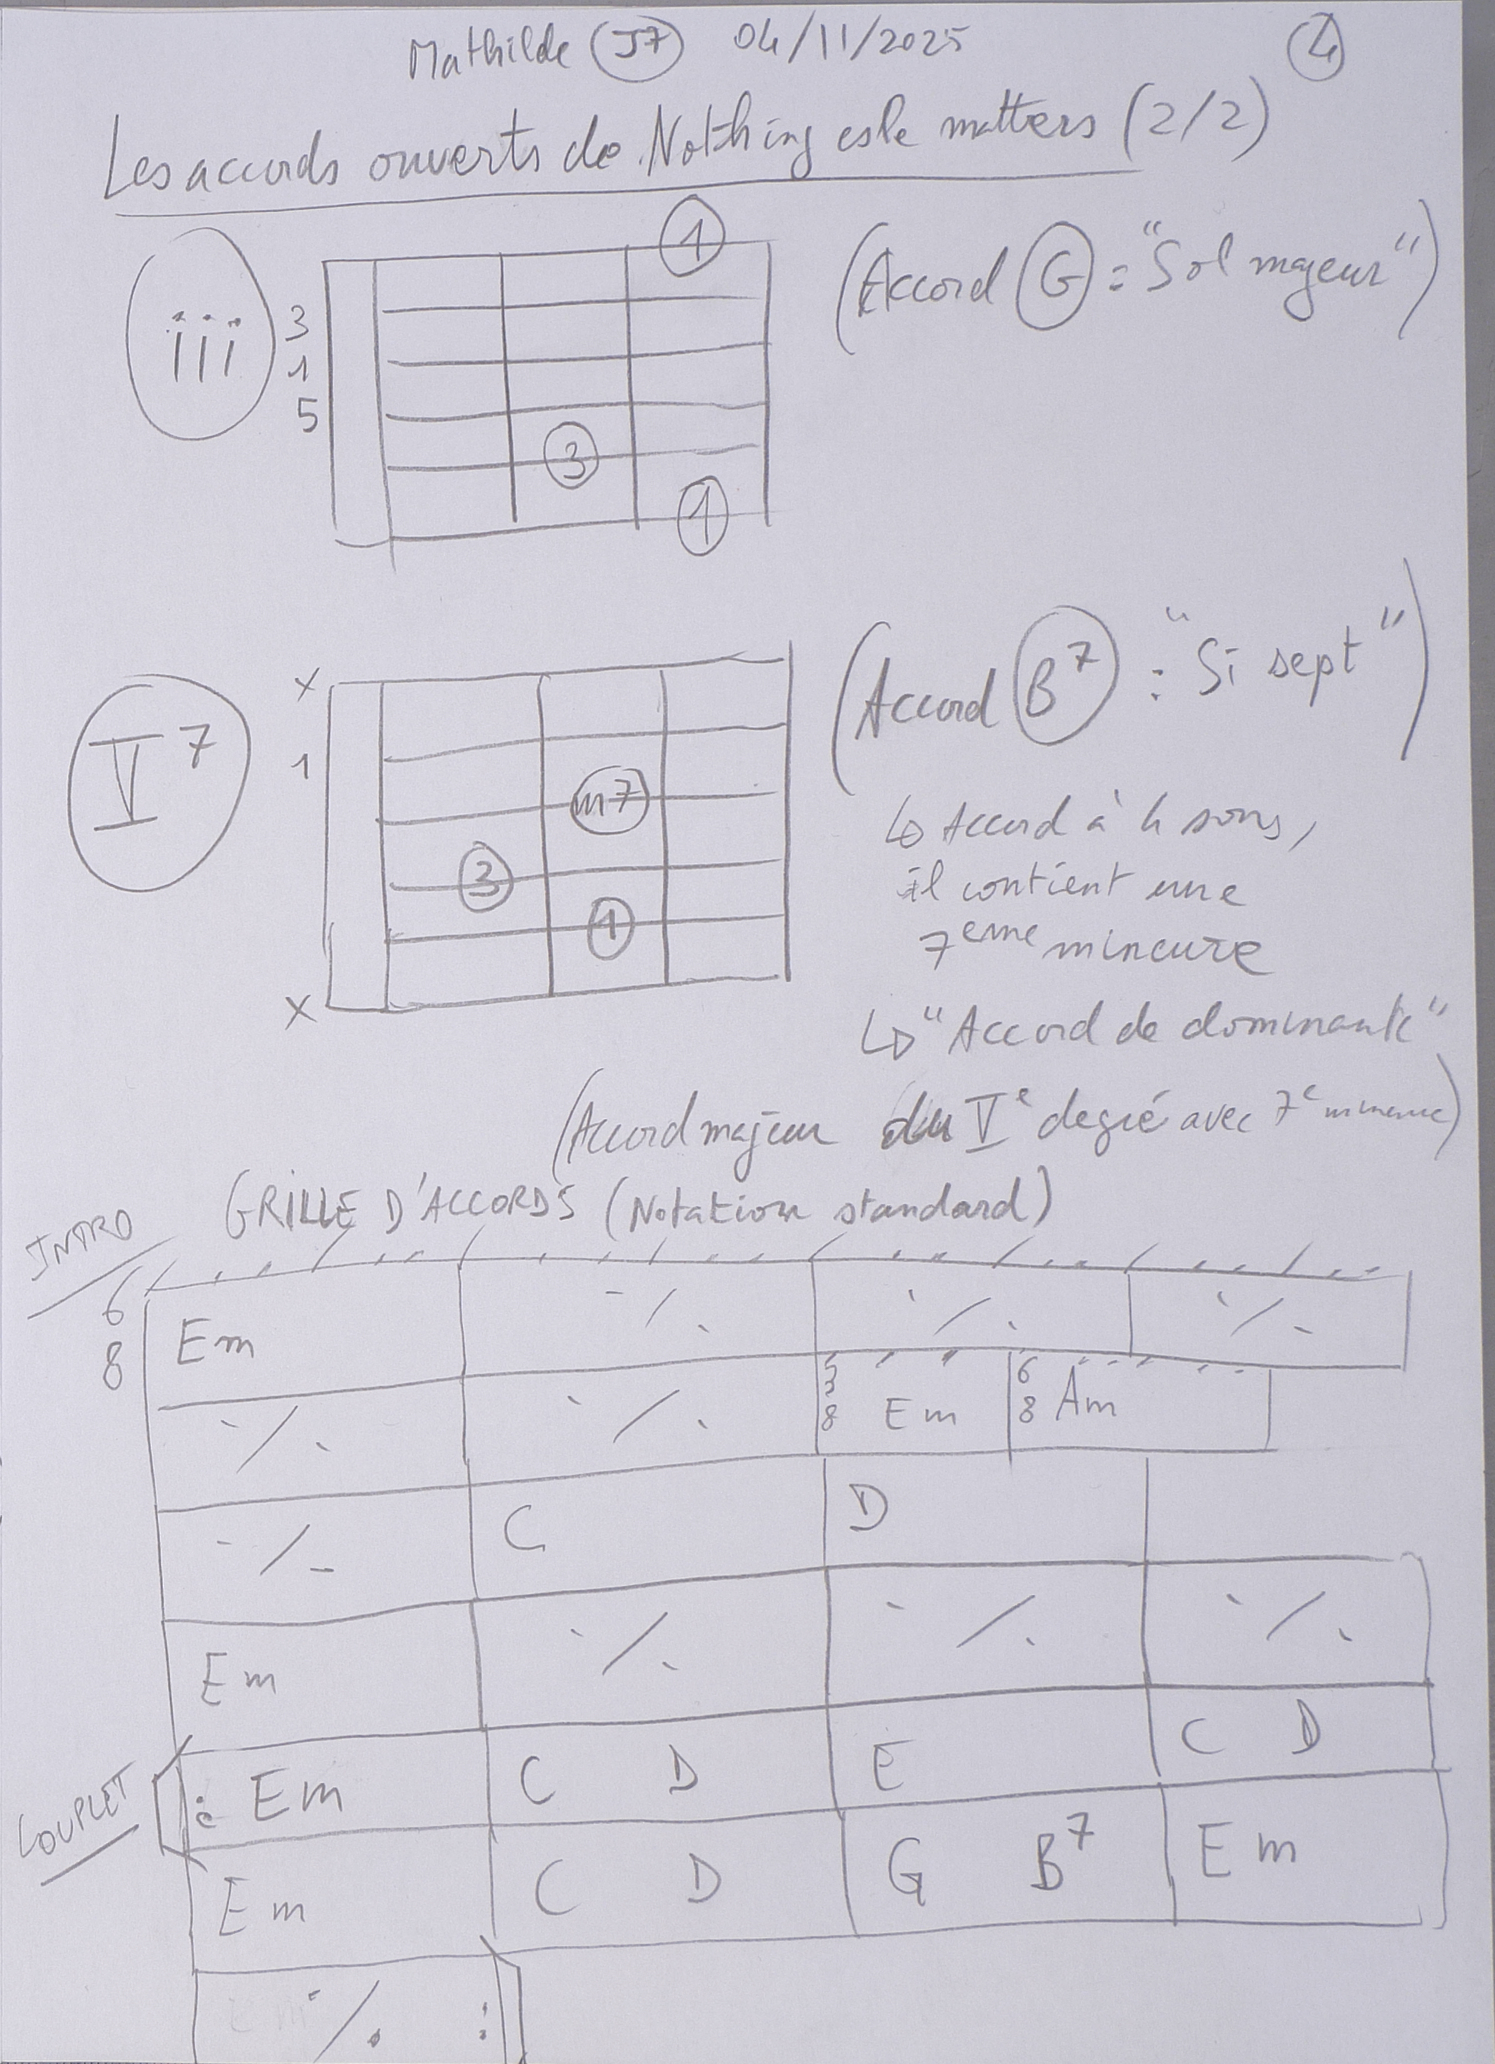 Mathilde J7 04/11/2025 4
Les accords ouverts de Nothing esle matters (2/2)
iii
1
3
1
5
3
1
(Accord G = "Sol majeur")
V7
x
1
m7
3
1
x
(Accord B7 : "Si sept")
↳ Accord à 4 sons,
il contient une
7eme mineure
↳ "Accord de dominante"
(Accord majeur du Ve degré avec 7e mineure)
INTRO GRILLE D'ACCORDS (Notation standard)
6
8
Em ·/. ·/. ·/.
·/. ·/. 3/8 Em 6/8 Am
·/. C D
Em ·/. ·/. ·/.
COUPLET
: Em C D E C D
Em C D G B7 Em
·/. :